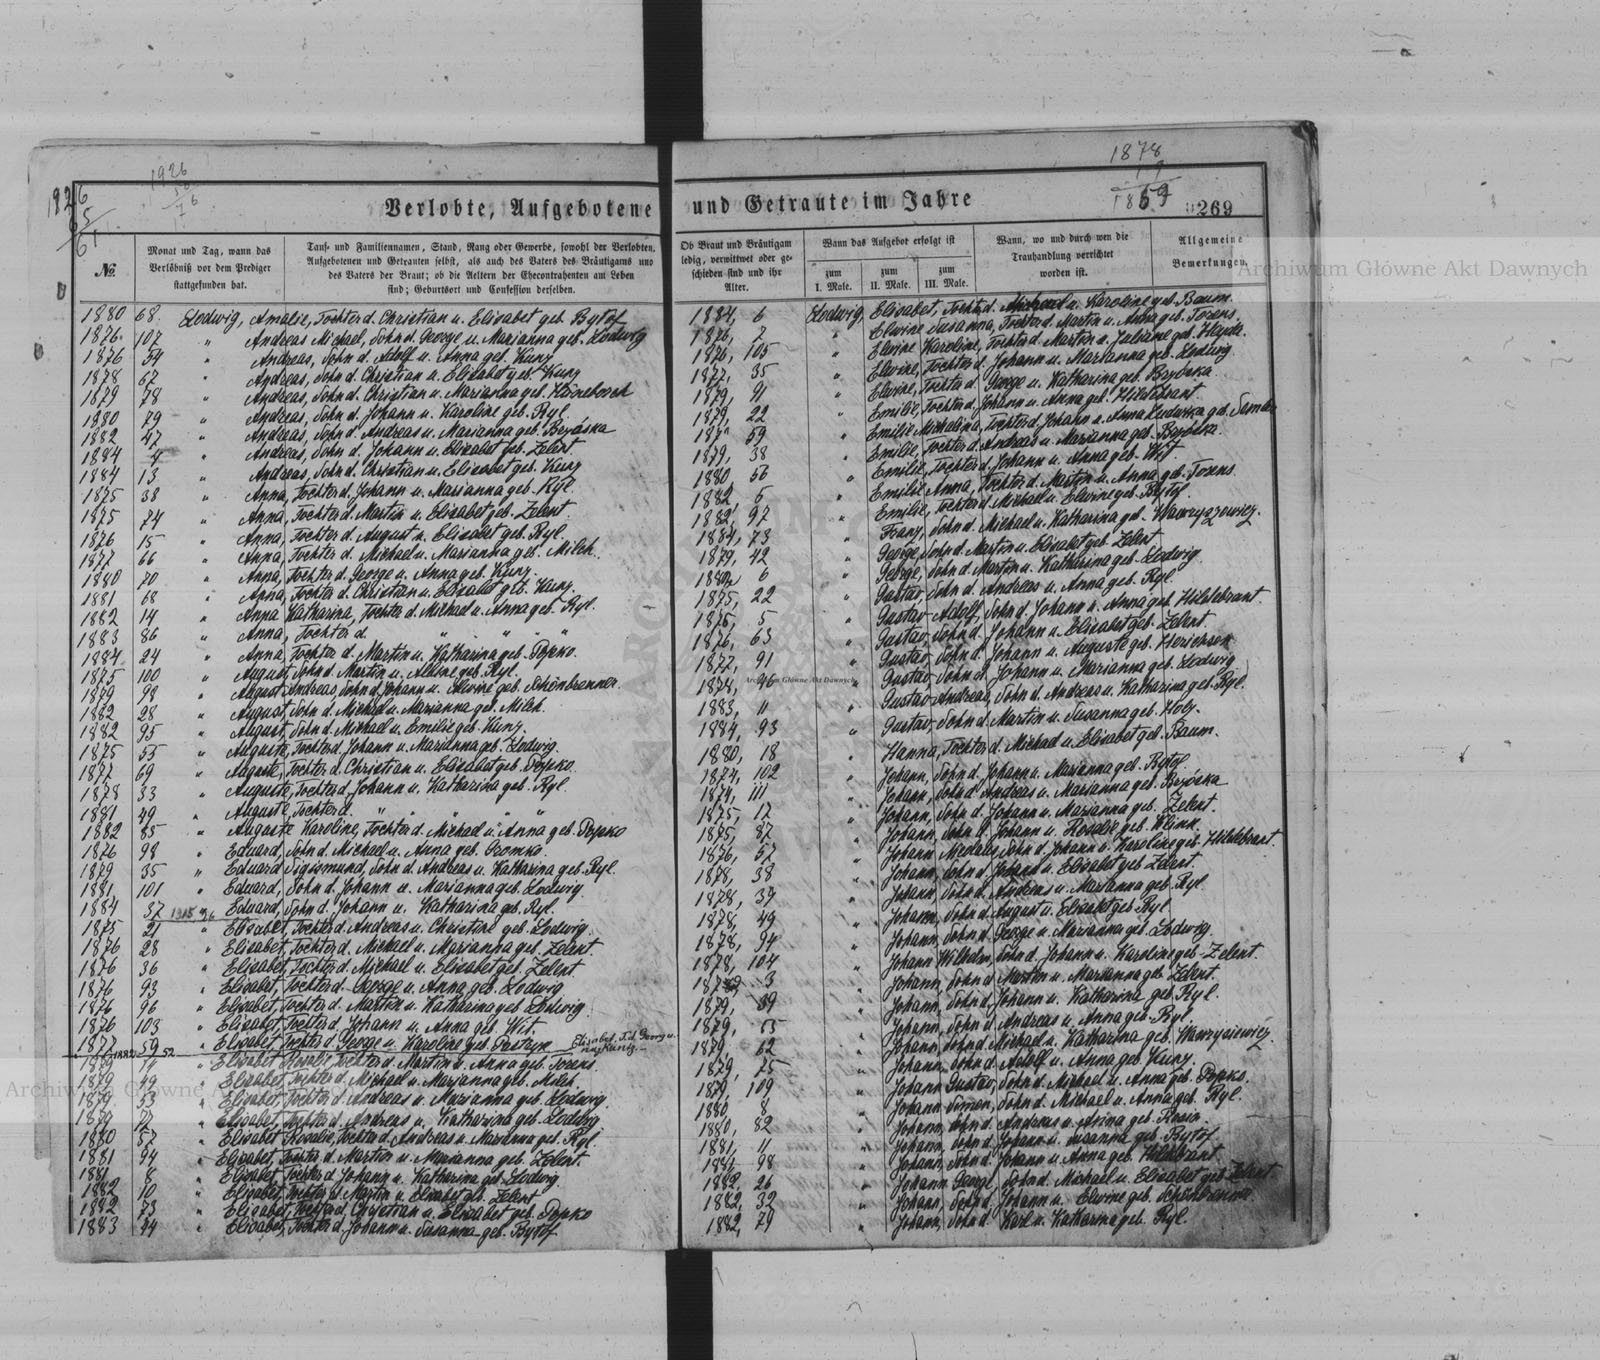 1926
1926
Verlobte, Aufgebotene
№
Monat und Tag, wann das Verlöbniß vor dem Prediger stattgefunden hat.
Tauf- und Familiennamen, Stand, Rang oder Gewerbe, sowohl der Verlobten, Aufgebotenen und Getrauten selbst, als auch des Vaters des Bräutigams und des Vaters der Braut; ob die Aeltern der Ehecontrahenten am Leben sind; Geburtsort und Confession derselben.
1880 68. Lodwig, Amalie, Tochter d. Christian u. Elisabet geb. Bytof
1876. 107 " Andreas Michael, Sohn d. George u. Marianna geb. Lodwig
1876 54 " Andreas, Sohn d. Adolf u. Anna geb. Kunz
1878 67 " Andreas, Sohn d. Christian u. Elisabet geb. Kunz
1879 78 " Andreas, Sohn d. Christian u. Marianna geb.
1880 79 " Andreas, Sohn d. Johann u. Karoline geb. Ryl.
1882 47 " Andreas, Sohn d. Andreas u. Marianna geb. Bezóska
1884 4 " Andreas, Sohn d. Johann u. Elisabet geb. Zelent.
1884 13 " Andreas, Sohn d. Christian u. Elisabet geb. Kunz
1875 38 " Anna, Tochter d. Johann u. Marianna geb. Ryl.
1875 74 " Anna, Tochter d. Martin u. Elisabet geb. Zelent
1876 15 " Anna, Tochter d. August u. Elisabet geb. Ryl.
1877 66 " Anna, Tochter d. Michael u. Marianna geb. Milch.
1880 70 " Anna, Tochter d. George u. Anna geb. Kunz.
1881 68 " Anna, Tochter d. Christian u. Elisabet geb. Kunz.
1882 14 " Anna Katharina, Tochter d. Michael u. Anna geb. Ryl.
1883 86 " Anna, Tochter d. " " " "
1884 24 " Anna, Tochter d. Martin u. Katharina geb. Popko.
1875 100 " August, Sohn d. Martin u. Albine geb. Ryl.
1879 98 " August Andreas, Sohn d. Johann u. Elwine geb. Schönbrenner.
1882 28 " August, Sohn d. Michael u. Marianna geb. Milch.
1882 95 " August, Sohn d. Michael u. Emilie geb. Kunz.
1875 55 " Auguste, Tochter d. Johann u. Marianna geb. Lodwig.
1877 69 " Auguste, Tochter d. Christian u. Elisabet geb. Popko.
1878 33 " Auguste, Tochter d. Johann u. Katharina geb. Ryl.
1881 49 " Auguste, Tochter d. " " " "
1882 85 " Auguste Karoline, Tochter d. Michael u. Anna geb. Popko
1876 98 " Eduard, Sohn d. Michael u. Anna geb.
1879 35 " Eduard Sigismund, Sohn d. Andreas u. Katharina geb. Ryl.
1881 101 " Eduard, Sohn d. Johann u. Marianna geb. Lodwig
1884 37 " Eduard, Sohn d. Johann u. Katharina geb. Ryl.
1875 21 " Elisabet, Tochter d. Andreas u. Christine geb. Lodwig.
1876 28 " Elisabet, Tochter d. Michael u. Marianna geb. Zelent.
1876 36 " Elisabet, Tochter d. Michael u. Elisabet geb. Zelent
1876 93 " Elisabet, Tochter d. George u. Anna geb. Lodwig
1876 96 " Elisabet, Tochter d. Martin u. Katharina geb. Lodwig.
1876 103 " Elisabet, Tochter d. Johann u. Anna geb. Wit.
1877 59 " Elisabet, Tochter d. George u. Karoline geb.
1882 52 Elisabet, T. d. Georg u.
" Elisabet Rosalie, Tochter d. Martin u. Anna geb. Torens.
1879 49 " Elisabet, Tochter d. Michael u. Marianna geb. Milch.
1879 53 " Elisabet, Tochter d. Andreas u. Marianna geb. Lodwig.
1879 72 " Elisabet, Tochter d. Andreas u. Katharina geb. Lodwig
1880 57 " Elisabet Rosalie, Tochter d. Andreas u. Marianna geb. Ryl.
1881 94 " Elisabet, Tochter d. Martin u. Marianna geb. Zelent.
1881 8 " Elisabet, Tochter d. Johann u. Katharina geb. Lodwig.
1882 10 " Elisabet, Tochter d. Martin u. Elisabet geb. Zelent
1882 73 " Elisabet, Tochter d. Christian u. Elisabet geb. Popko
1883 44 " Elisabet, Tochter d. Johann u. Susanna geb. Bytof
1878
und Getraute im Jahre
269
Ob Braut und Bräutigam ledig, verwittwet oder geschieden sind und ihr Alter.
Wann das Aufgebot erfolgt ist
zum I. Male.
zum II. Male.
zum III. Male.
Wann, wo und durch wen die Trauhandlung verrichtet worden ist.
Allgemeine Bemerkungen.
1884, 6 Lodwig, Elisabet, Tochter d. Michael u. Karoline geb. Baum.
1876, 7 " Elwine Susanna, Tochter d. Martin u. Anna geb. Torens.
1876, 105 " Elwine Karoline, Tochter d. Martin u. Juliane geb.
1877, 35 " Elwine, Tochter d. Johann u. Marianna geb. Lodwig.
1879, 91 " Elwine, Tochter d. George u. Katharina geb. Bezóska.
1879, 22 " Emilie, Tochter d. Johann u. Anna geb. Hildebrant
59 " Emilie Michalina, Tochter d. Johann u. Anna Ludwika geb.
1879, 38 " Emilie, Tochter d. Andreas u. Marianna geb. Bezóska.
1880 50 " Emilie, Tochter d. Johann u. Anna geb. Wit.
1882 5 " Emilie Anna, Tochter d. Martin u. Anna geb. Torens.
1882, 97 " Emilie, Tochter d. Michael u. Elwine geb. Bytof.
1884, 73 " Franz, Sohn d. Michael u. Katharina geb. Wawryszewicz.
1879, 42 " George, Sohn d. Martin u. Elisabet geb. Zelent
6 " George, Sohn d. Martin u. Katharina geb. Lodwig.
1875, 22 " Gustav, Sohn d. Andreas u. Anna geb. Ryl.
1875, 5 " Gustav Adolf, Sohn d. Johann u. Anna geb. Hildebrant.
1876, 63 " Gustav, Sohn d. Johann u. Elisabet geb. Zelent.
1877, 91 " Gustav, Sohn d. Johann u. Auguste geb.
1878, 46 " Gustav, Sohn d. Johann u. Marianna geb. Lodwig
1883, 11 " Gustav Andreas, Sohn d. Andreas u. Katharina geb. Ryl.
1884, 93 " Gustav, Sohn d. Martin u. Susanna geb. Holz.
1880, 18 " Hanna, Tochter d. Michael u. Elisabet geb. Baum.
1874, 102 " Johann, Sohn d. Johann u. Marianna geb. Bytof.
1874, 111 " Johann, Sohn d. Andreas u. Marianna geb. Bezóska
1875, 17 " Johann, Sohn d. Johann u. Marianna geb. Zelent.
1875, 87 " Johann, Sohn d. Johann u. Rosalie geb. Klink.
1876, 57 " Johann Nicolaus, Sohn d. Johann u. Karoline geb. Hildebrant.
1878, 38 " Johann, Sohn d. Johann u. Elisabet geb. Zelent.
1878, 39 " Johann, Sohn d. Andreas u. Marianna geb. Ryl
1878, 49 " Johann, Sohn d. August u. Elisabet geb. Ryl.
1878, 94 " Johann, Sohn d. George u. Marianna geb. Lodwig.
1878, 104 " Johann Wilhelm, Sohn d. Johann u. Karoline geb. Zelent.
3 " Johann, Sohn d. Martin u. Marianna geb. Zelent.
1879, 39 " Johann, Sohn d. Johann u. Katharina geb. Ryl.
1879, 55 " Johann, Sohn d. Andreas u. Anna geb. Ryl.
1879 62 " Johann, Sohn d. Michael u. Katharina geb. Wawrysiewicz
1879, 75 " Johann, Sohn d. Adolf u. Anna geb. Kunz.
1879, 109 " Johann Gustav, Sohn d. Michael u. Anna geb. Popko.
1880, 8 " Johann Simon, Sohn d. Michael u. Anna geb. Ryl.
1880, 82 " Johann, Sohn d. Andreas u. Anna geb.
1881, 11 " Johann, Sohn d. Johann u. Susanna geb. Bytof
1881, 98 " Johann, Sohn d. Johann u. Anna geb. Hildebrant.
1882, 26 " Johann George, Sohn d. Michael u. Elisabet geb. Zelent.
1882, 32 " Johann, Sohn d. Johann u. Elwine geb. Schönbrenner
1882, 79 " Johann, Sohn d. Karl u. Katharina geb. Ryl.
Archiwum Główne Akt Dawnych
Archiwum Główne Akt Dawnych
Archiwum Główne Akt Dawnych